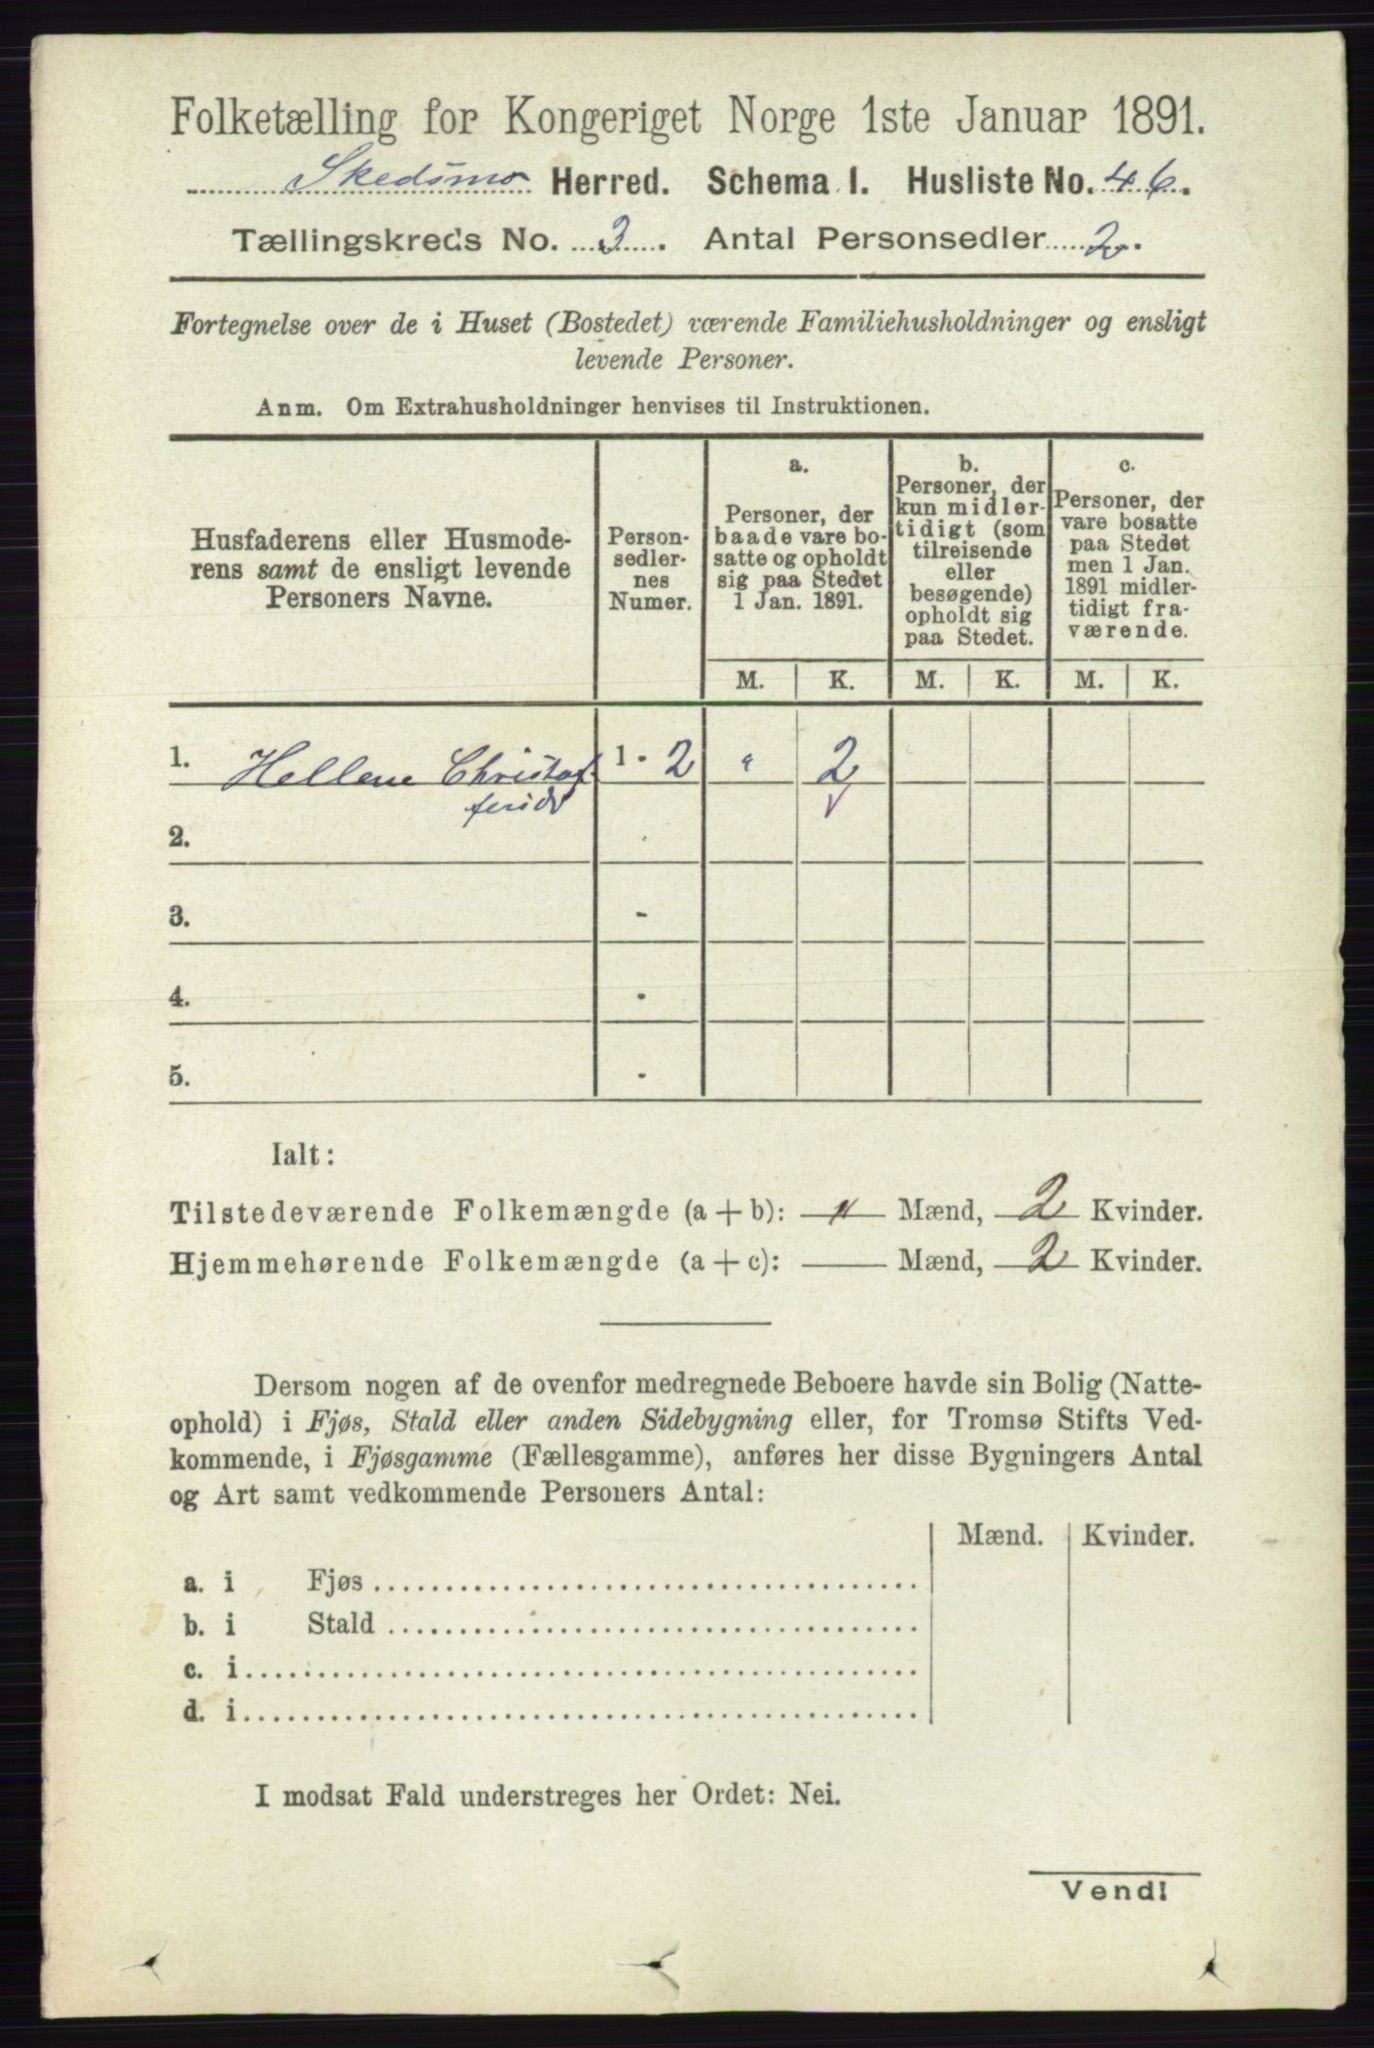 Folketælling for Kongeriget Norge 1ste Januar 1891.
Skedsmo Herred. Schema I. Husliste No. 46.
Tællingskreds No. 3. Antal Personsedler 2.
Fortegnelse over de i Huset (Bostedet) værende Familiehusholdninger og ensligt
levende Personer.
Anm. Om Extrahusholdninger henvises til Instruktionen.
Husfaderens eller Husmode-
rens samt de ensligt levende
Personers Navne.
Person-
sedler-
nes
Numer.
a.
Personer, der
baade vare bo-
satte og opholdt
sig paa Stedet
1 Jan. 1891.
b.
Personer, der
kun midler-
tidigt (som
tilreisende
eller
besøgende)
opholdt sig
paa Stedet.
c.
Personer, der
vare bosatte
paa Stedet
men 1 Jan.
1891 midler-
tidigt fra-
værende.
M. K. M. K. M. K.
1. Hellene Christof 1 - 2 " 2
2. -
3. -
4. -
5. -
Ialt:
Tilstedeværende Folkemængde (a + b): " Mænd, 2 Kvinder.
Hjemmehørende Folkemængde (a + c): Mænd, 2 Kvinder.
Dersom nogen af de ovenfor medregnede Beboere havde sin Bolig (Natte-
ophold) i Fjøs, Stald eller anden Sidebygning eller, for Tromsø Stifts Ved-
kommende, i Fjøsgamme (Fællesgamme), anføres her disse Bygningers Antal
og Art samt vedkommende Personers Antal:
Mænd. Kvinder.
a. i Fjøs
b. i Stald
c. i
d. i
I modsat Fald understreges her Ordet: Nei.
Vend!